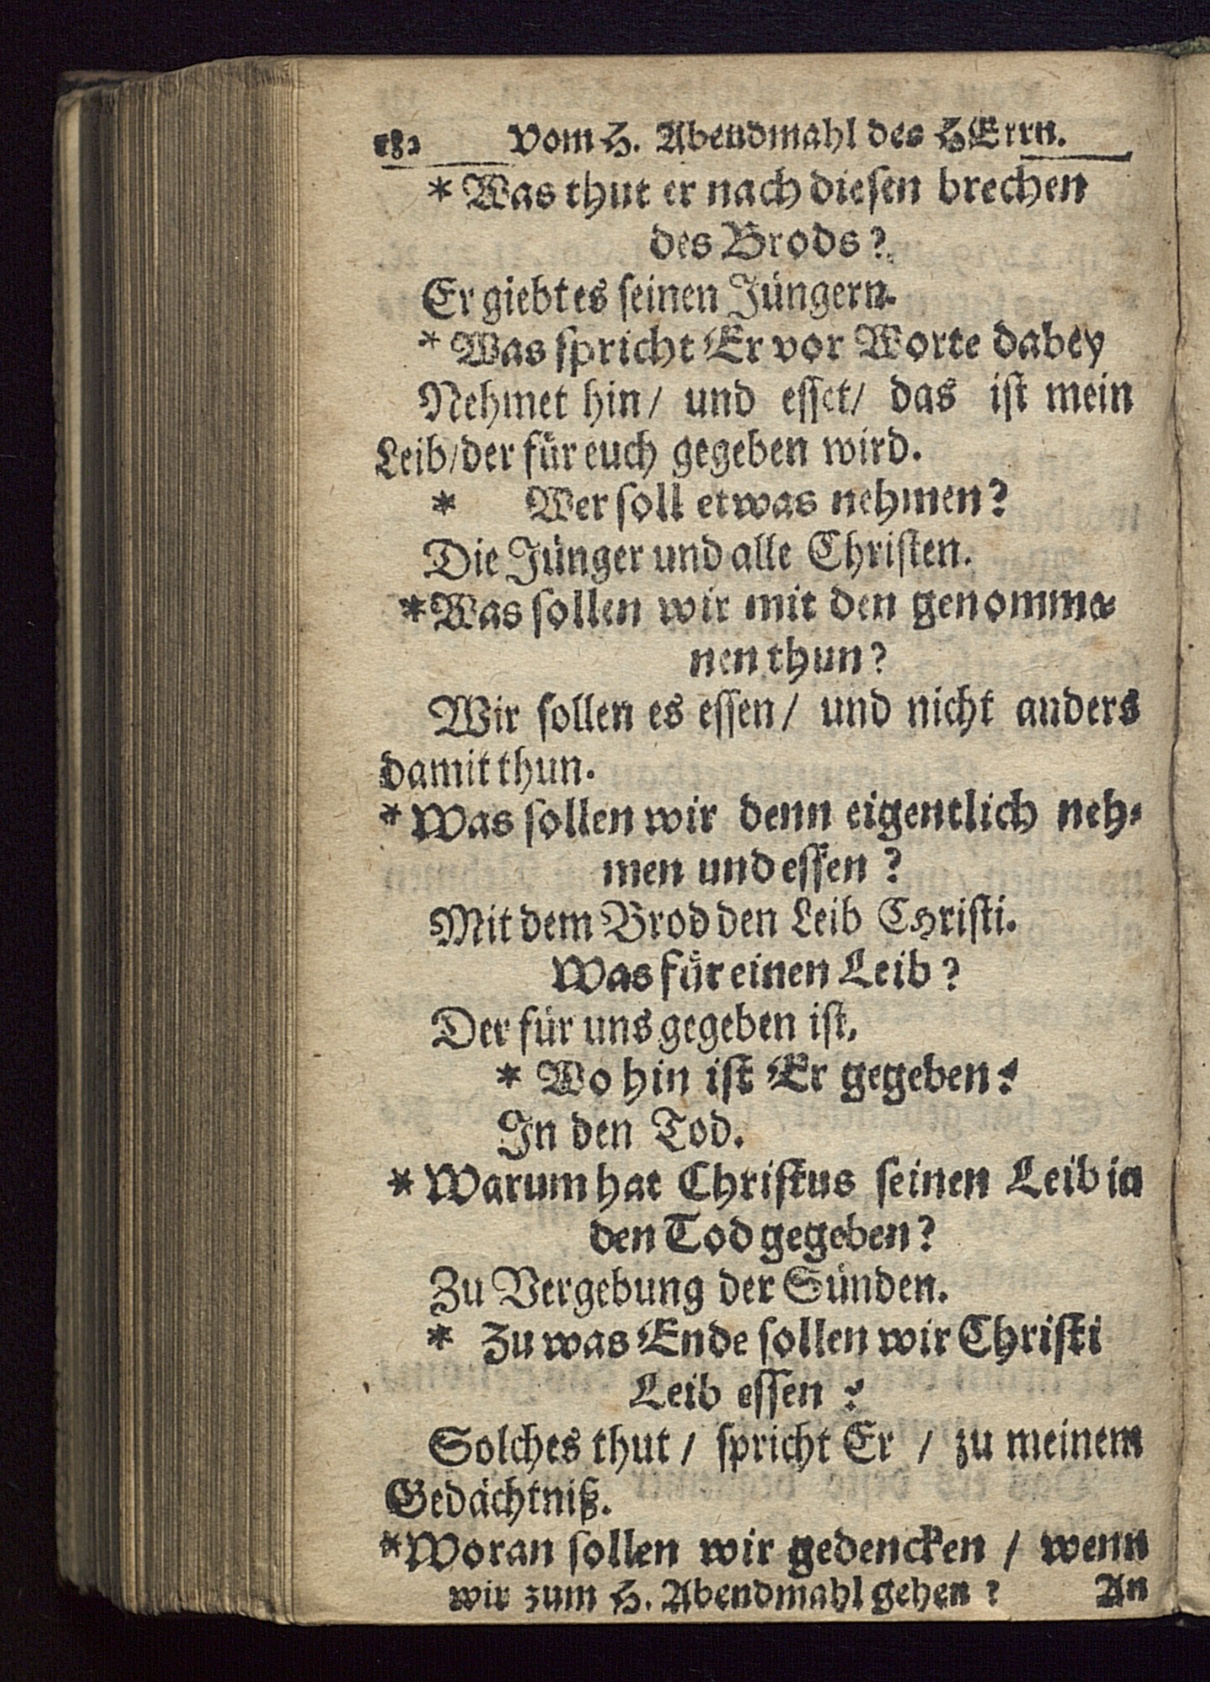 182 Vom H. Abendmahl des HErrn.
* Was thut er nach diesen brechen
des Brods?
Er giebt es seinen Jüngern.
* Was spricht Er vor Worte dabey
Nehmet hin/ und esset/ das ist mein
Leib/der für euch gegeben wird.
* Wer soll etwas nehmen?
Die Jünger und alle Christen.
*Was sollen wir mit den genomme-
nen thun?
Wir sollen es essen/ und nicht anders
damit thun.
*Was sollen wir denn eigentlich neh-
men und essen?
Mit dem Brod den Leib CHristi.
Was für einen Leib?
Der für uns gegeben ist,
* Wo hin ist Er gegeben?
In den Tod.
* Warum hat Christus seinen Leib in
den Tod gegeben?
Zu Vergebung der Sünden.
* Zu was Ende sollen wir Christi
Leib essen?
Solches thut/ spricht Er / zu meinem
Gedächtniß.
*Woran sollen wir gedencken / wenn
wir zum H. Abendmahl gehen? An